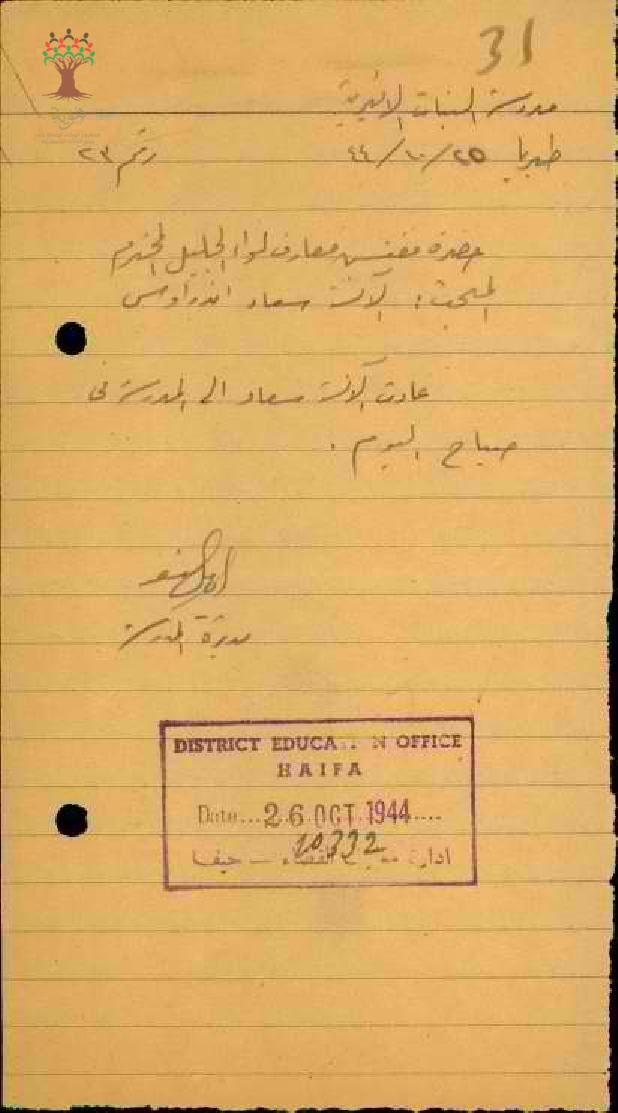 31
مدرسة البنات الاميرية
طبريا ٢٥/١٠/٤٤ رقم ٢٣
حضرة مفتش معارف لواء الجليل المحترم
المبحث: الآنسة سعاد اندراوس
عادت الآنسة سعاد الى المدرسة في
صباح اليوم.
مديرة المدرسة
DISTRICT EDUCA N OFFICE
HAIFA
Date...26 OCT 1944....
10332
ادارة القضاء – حيفا